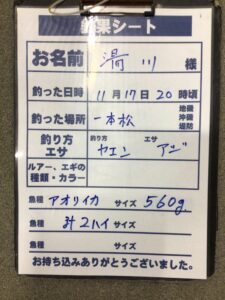 釣果シート
お名前 湯川 様
釣った日時 11月17日20時頃
釣った場所 一本松 地磯 沖磯 堤防
釣り方 エサ 釣り方 ヤエン エサ アジ
ルアー、エギの種類・カラー
魚種 アオリイカ サイズ 560g
魚種 計2ハイ サイズ
魚種 サイズ
お持ち込みありがとうございました。